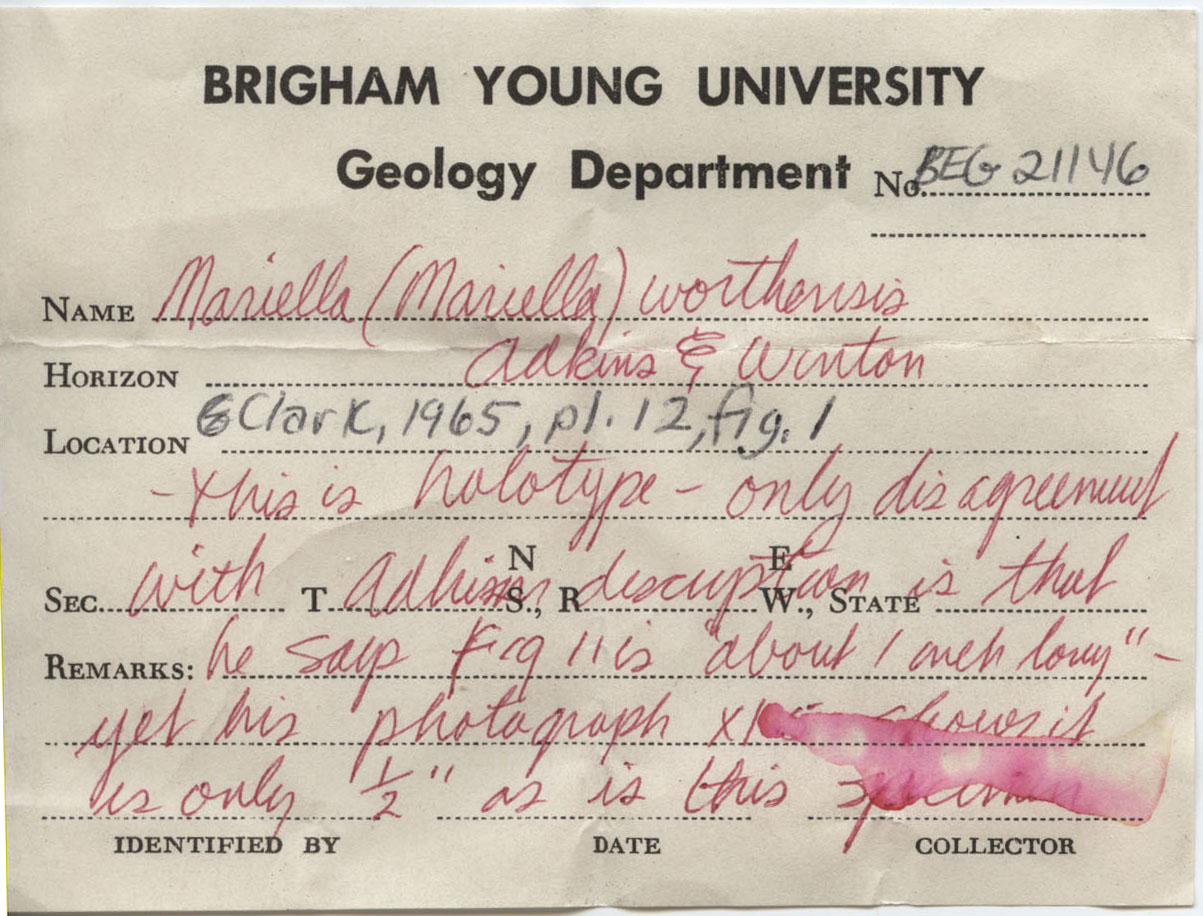 BRIGHAM YOUNG UNIVERSITY
Geology Department No. BEG 21146
NAME Mariella (Mariella) worthensis
HORIZON Adkins & Winton
LOCATION Clark, 1965, pl. 12, fig. 1
- This is holotype - only disagreement
SEC. with T Adkins N S., R description E W., STATE is that
REMARKS: he says Fig 11 is "about 1 inch long" -
yet his photograph shows it
is only 1/2" as is this specimen
IDENTIFIED BY DATE COLLECTOR